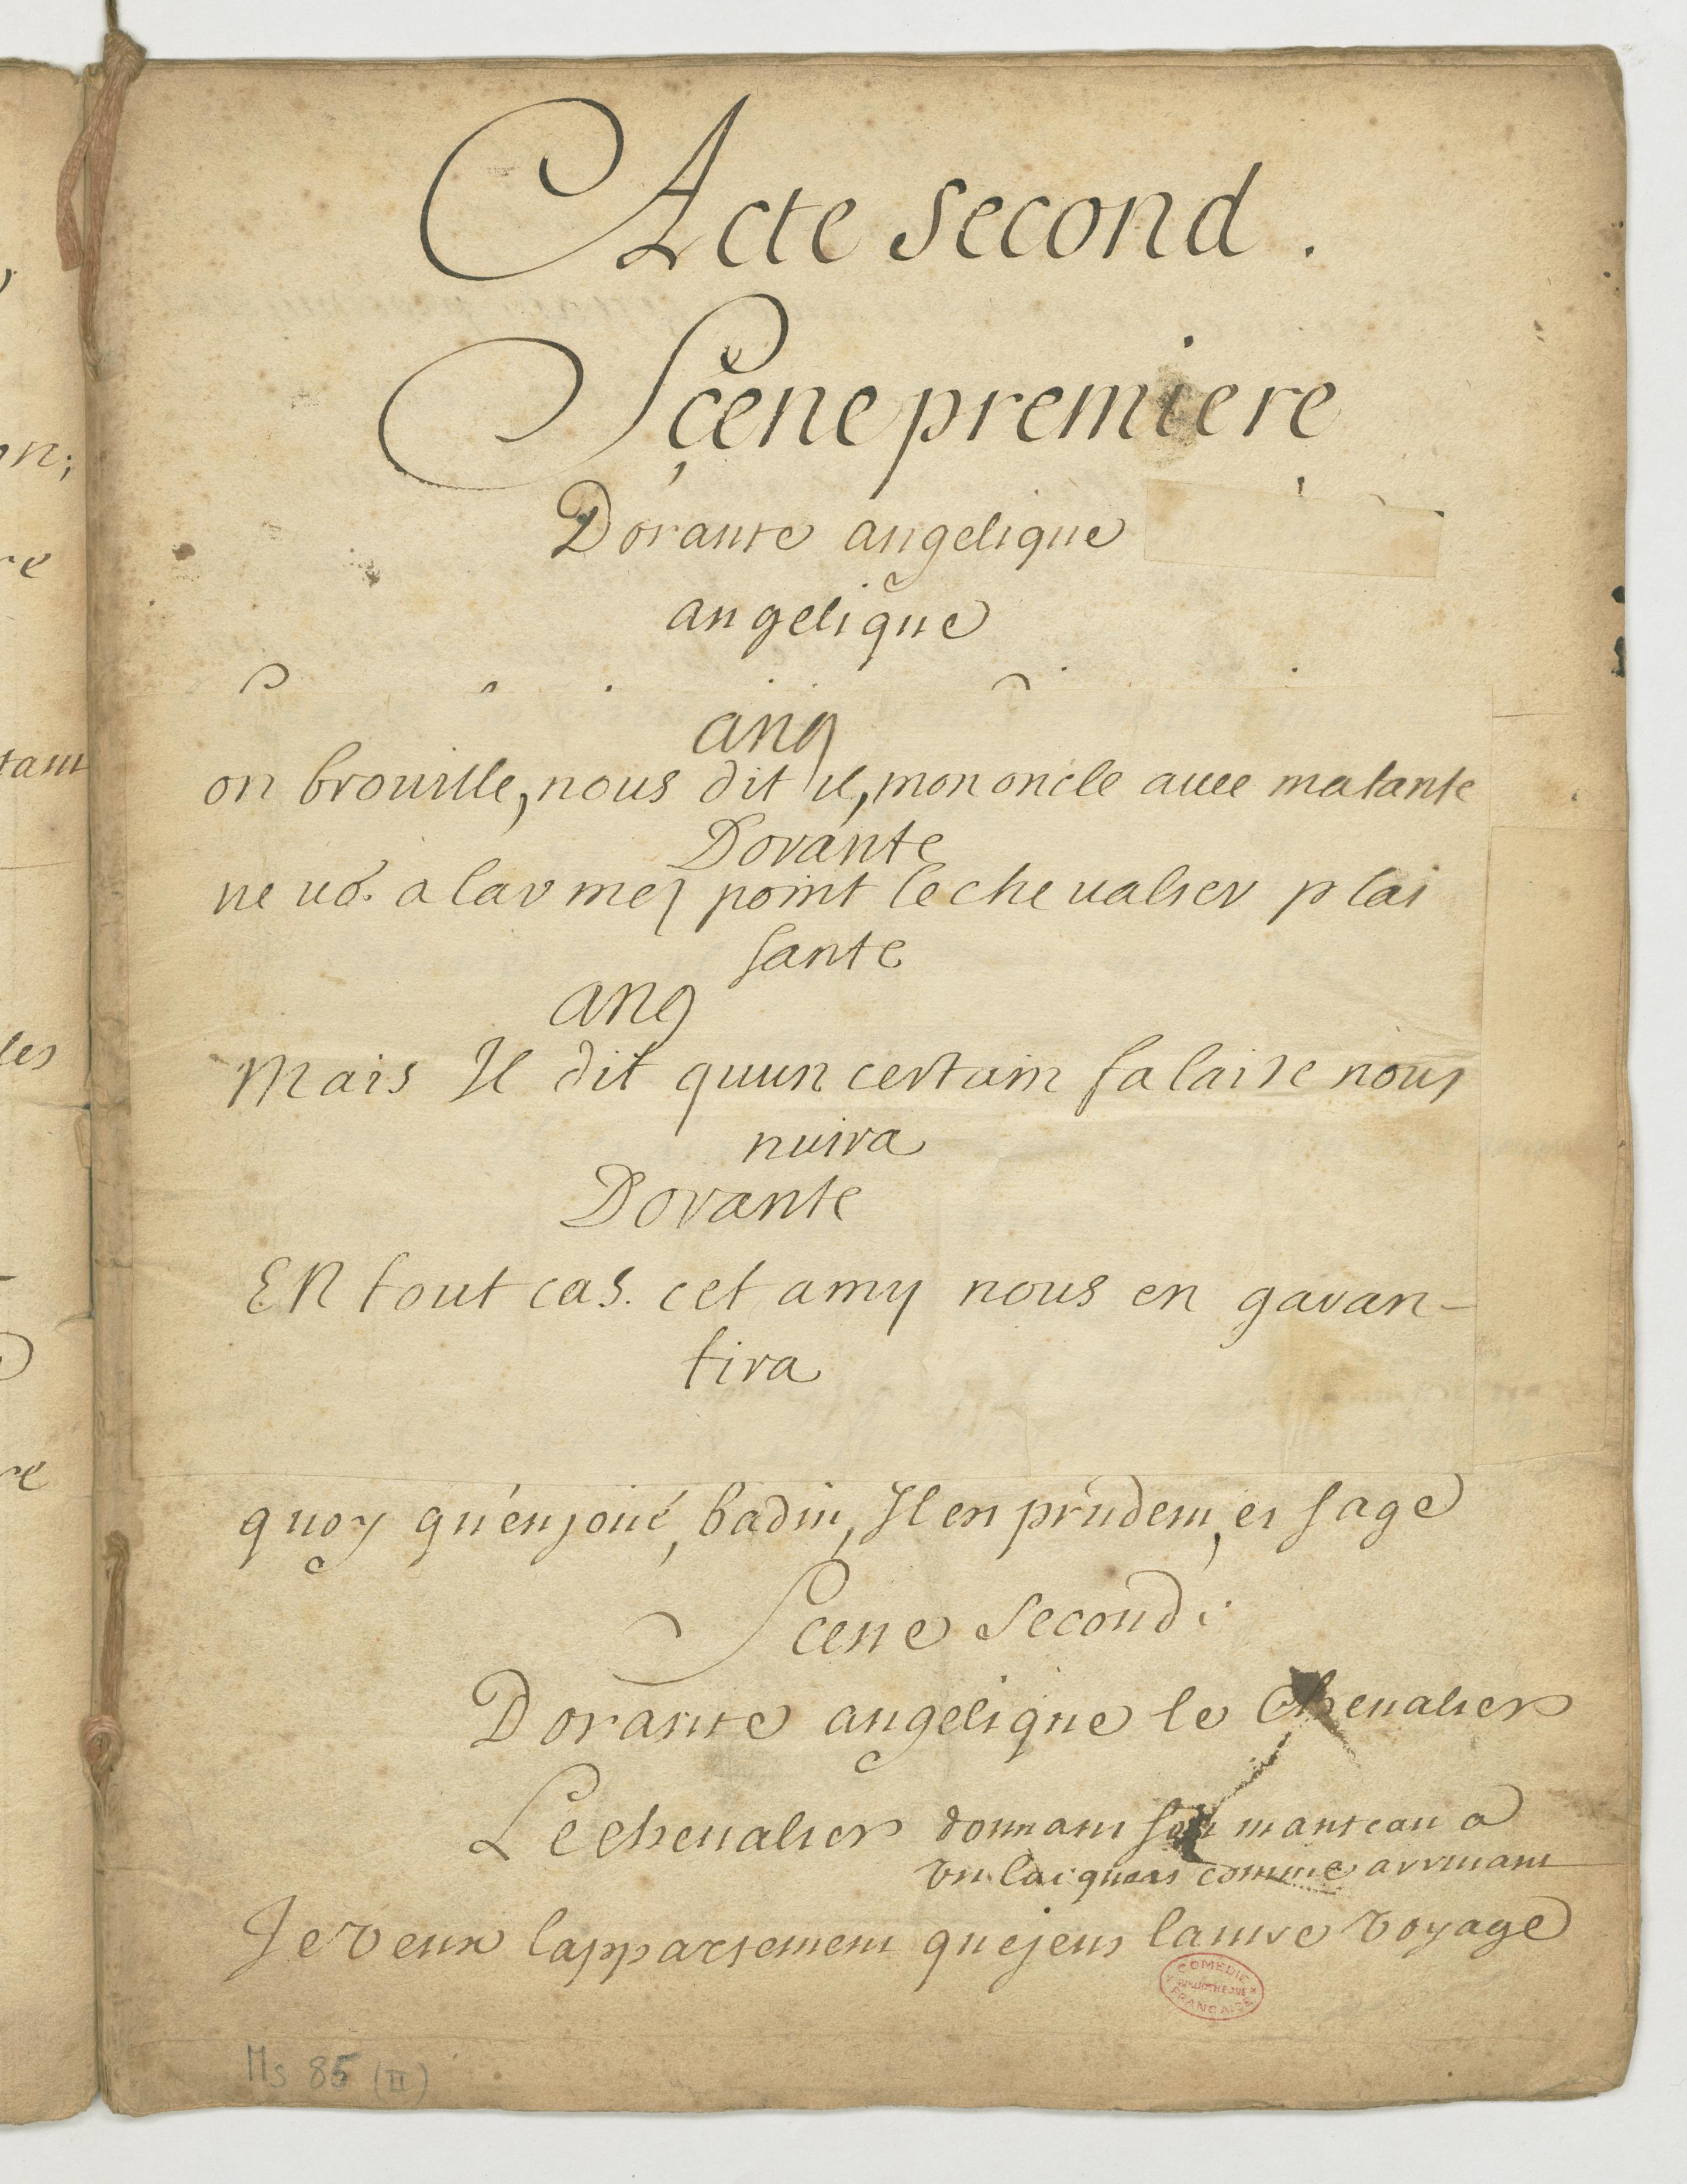 Acte second.
Scene premiere
Dorante angelique
angelique
ang
on brouille, nous dit il, mon oncle avec matante
Dorante
ne uo. alarmez point le cheualier plai
sante
ang
Mais Il dit quun certain falaise nous
nuira
Dorante
EN tout cas. cet amy nous en garan-
tira
quoy qu'enjoué, badin, Il est prudent, et sage
Scene second
Dorante angelique le Cheualier
Le cheualier donnant son manteau a
vn lacquais comme arrivant
Je veux lappartement que jeus lautre voyage
COMEDIE FRANÇAISE
BIBLIOTHEQUE
Ms 85 (II)
n;
re
tant
les
re